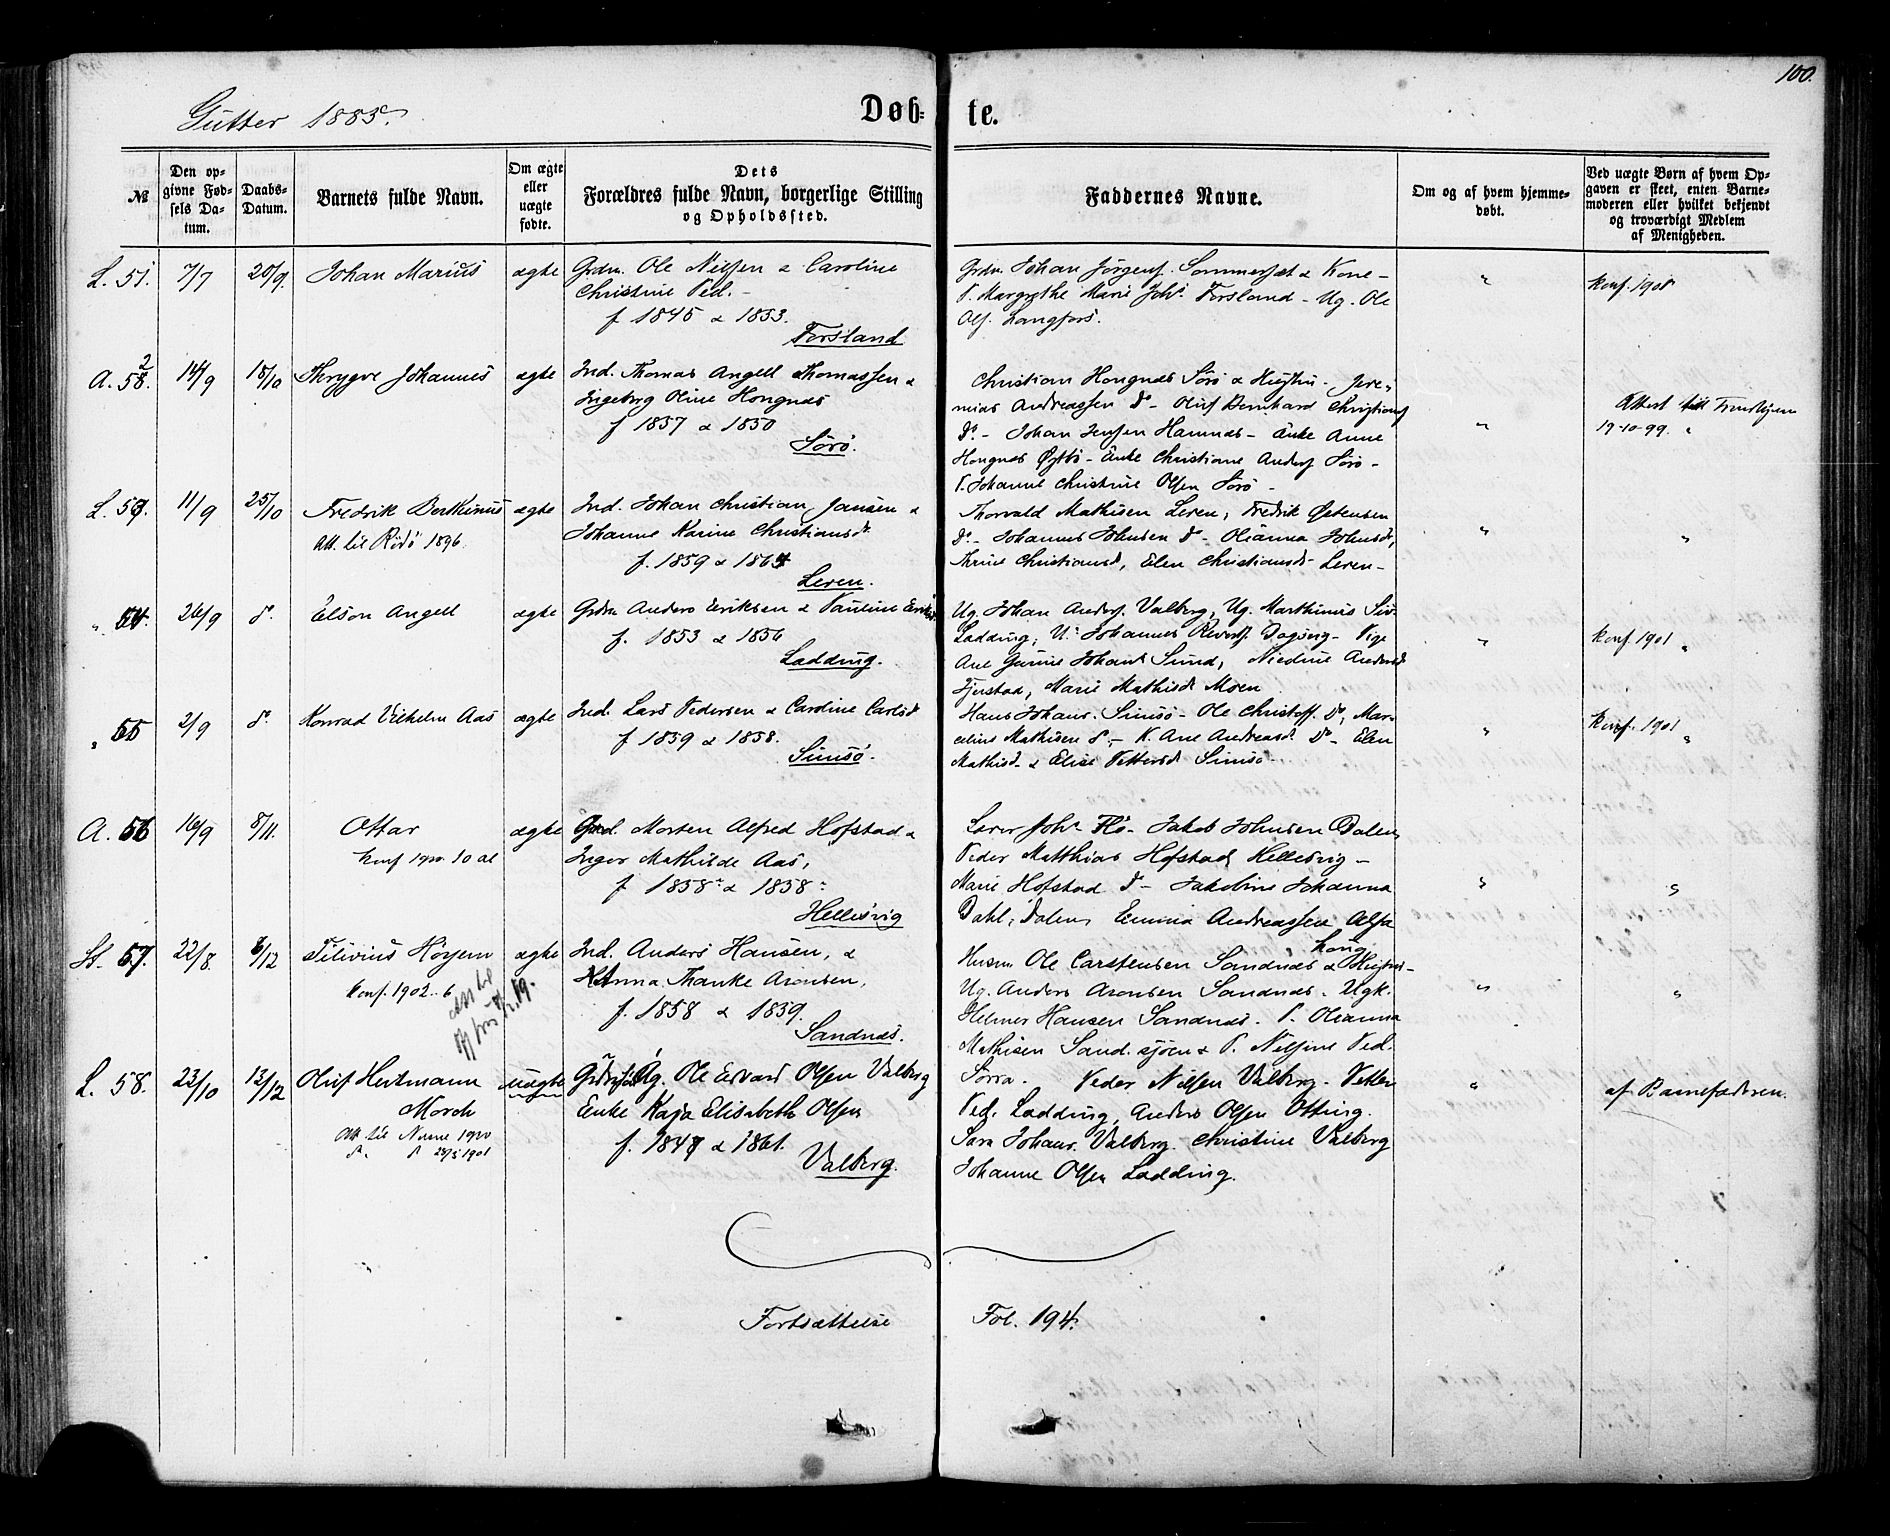 100.
Gutter 1885.
Døb- te.
№
Den op-
givne Fød-
sels Da-
tum.
Daabs-
Datum.
Barnets fulde Navn.
Om ægte
eller
uægte
fødte.
Dets
Forældres fulde Navn, borgerlige Stilling
og Opholdssted.
Faddernes Navne.
Om og af hvem hjemme-
døbt.
Ved uægte Børn af hvem Op-
gaven er skeet, enten Barne-
moderen eller hvilket bekjendt
og troværdigt Medlem
af Menigheden.
L. 51. 7/7 20/9. Johan Marius ægte Grdm. Ole Nilsen &amp; Caroline
Christine Ped. -
f 1845 &amp; 1853.
Forsland
Grdm. Johan Jörgens. Sommersæt &amp; Kone -
P. Margrethe Marie Joh. Forsland - Ug. Ole
Ols. Langfors.
"
Konf. 1901
A. 52. 14/9 18/10 Thrygve Johannes ægte Ind. Thomas Angell Thomassen &amp;
Ingeborg Oline Hongnæs
f 1857 &amp; 1850
Sörö.
Christian Hongnæs Sörö &amp; Hustru - Jere-
mias Andreassen do - Oluf Bernhard Christians
do - Johan Jensen Hamnæs - Enke Anne
Hongnæs - Enke Christiane Anders Sörö -
P. Johanne Christine Olsen Sörö -
"
Attest till Trondhjem
19-10-99. "
L. 53. 11/9 25/10 Fredrik Berthinus ægte
Att. til Rödö 1896.
Ind. Johan Christian Jansen &amp;
Johanne Karine Christiansd.
f. 1859 &amp; 1864
Leren.
Thorvald Mathisen Leren, Fredrik Östensen
do - Johannes Johnsen do - Olianna Johnsd.,
Thrine Christiansd, Elen Christiansd - Leren -
"
"
" 54. 26/9 do. Elson Angell ægte Grdm Anders Eriksen &amp; Pauline
f. 1853 &amp; 1856
Ladding.
Ug. Johan Anders. Valberg, Ug. Marthinus
Ladding, U. Johannes Dagsvig - Pige
Ane Johans Sund, Anders
Fjerstad, Marie Mathisd. Moen
"
Konf. 1901 "
" 55 2/9 do. Konrad Vilhelm Aas ægte Ind. Lars Pedersen &amp; Caroline Carlsd.
f 1859 &amp; 1858.
Simsö.
Hans Johans. Simsö - Ole Christoff. do, Mar-
celius Mathisen do - K. Ane Andreasd. do - Elen
Mathisd. &amp; Elise Pettersd. Simsö
"
Konf. 1901 "
A. 56 16/9 8/11. Ottar ægte
Konf 1900. 10 al
Grd. Morten Alfred Hofstad &amp;
Inger Mathilde Aas,
f 1858 &amp; 1858
Hellesvig
Lærer Joh. Flö - Jakob Johnsen Dalen,
Peder Matthias Hofstad Hellesvig -
Marie Hofstad do - Jakobine Johanna
Dahl, Dalen, Emma Andreassen
"
"
St. 57. 22/8. 6/12 Höyem ægte
Konf. 1902. 6
Ind. Anders Hansen, &amp;
Anna Thanke Aronsen,
f. 1858 &amp; 1859.
Sandnæs.
Husm Ole Carstensen Sandnæs &amp; Hustru -
Ug. Anders Aronsen Sandnæs - Ugk.
Helmer Hansen Sandnæs. P. Olianna
Mathisen Sand. sjöen &amp; P. Nilsine Ped.
Sörra.
"
"
L. 58. 23/10 13/12 Oluf Heitmann uægte
Morch
Att. til Næsne 1900
do. do 28/5 1901
Ug. Ole Edvard Olsen Valberg
Enke Kaja Elisabeth Olsen
f. 1847 &amp; 1861.
Valberg.
Peder Nilsen Valberg - Petter
Ped. Ladding, Anders Olsen Otting.
Sara Johans. Valberg, Christine Valberg
Johanne Olsen Ladding.
"
af Barnefaderen.
Fortsættelse Fol. 194.